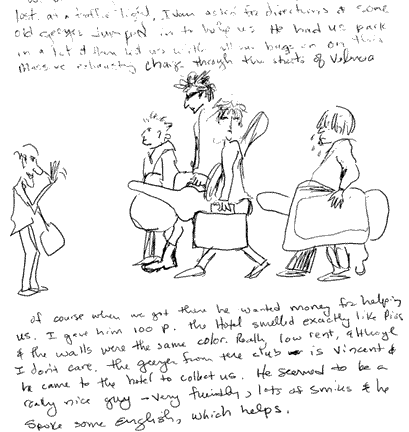 lost. at a traffic light, Ivan asked for directions & some
old geezer jumped in to help us. He had us park
in a lot & then led us with all our bags on on this
massive exhausting charge through the streets of Valencia
of course when we got there he wanted money for helping
us. I gave him 100 P. The Hotel smelled exactly like Piss
& the walls were the same color. Really low rent, although
I don't care. The geezer from the club is Vincent &
he came to the hotel to collect us. He seemed to be a
really nice guy - very friendly, lots of smiles & he
spoke some English, which helps.